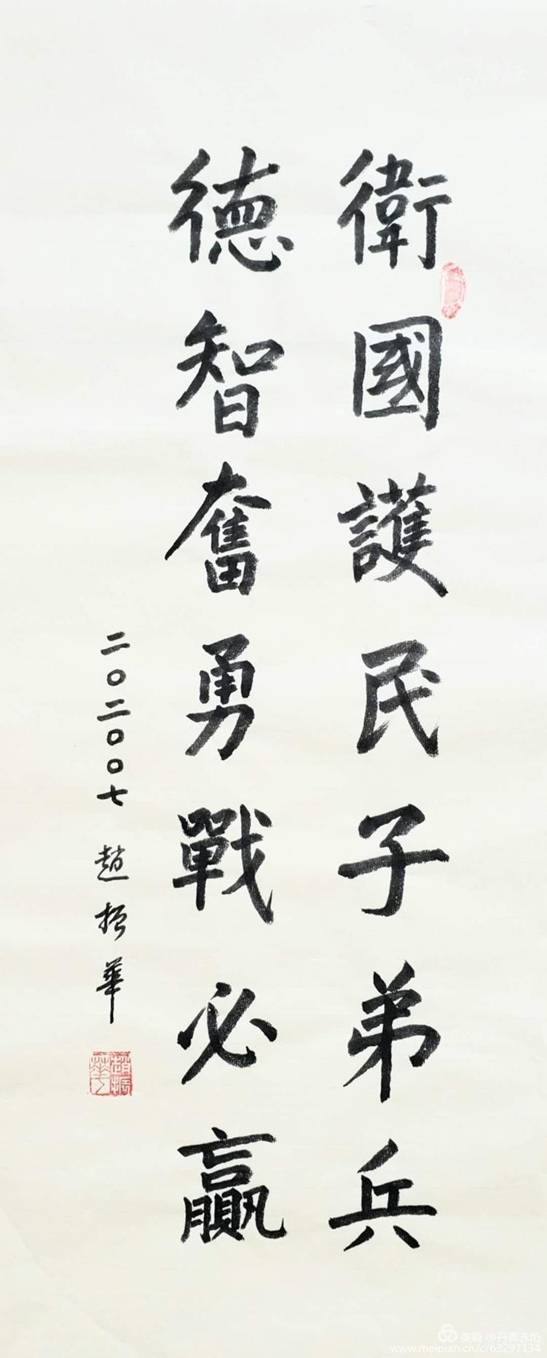 衛國護民子弟兵
德智奮勇戰必贏
二〇二〇〇七 趙振華
www.meipian.cn/c/63297134